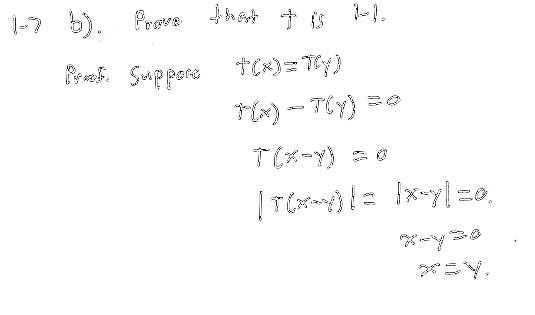 1-7 b). Prove that T is 1-1.
Proof. Suppose T(x) = T(y)
T(x) - T(y) = 0
T(x-y) = 0
|T(x-y)| = |x-y| = 0.
x-y=0.
x=y.